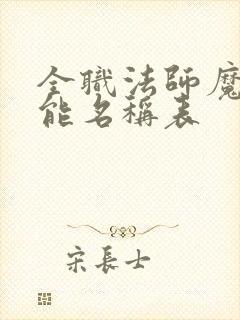 全職法師魔
能名稱表
宋長士